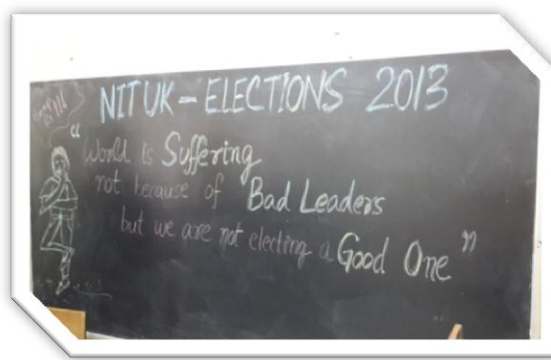 NITUK - ELECTIONS 2013
"World is Suffering
not because of Bad Leaders
but we are not electing a Good One"